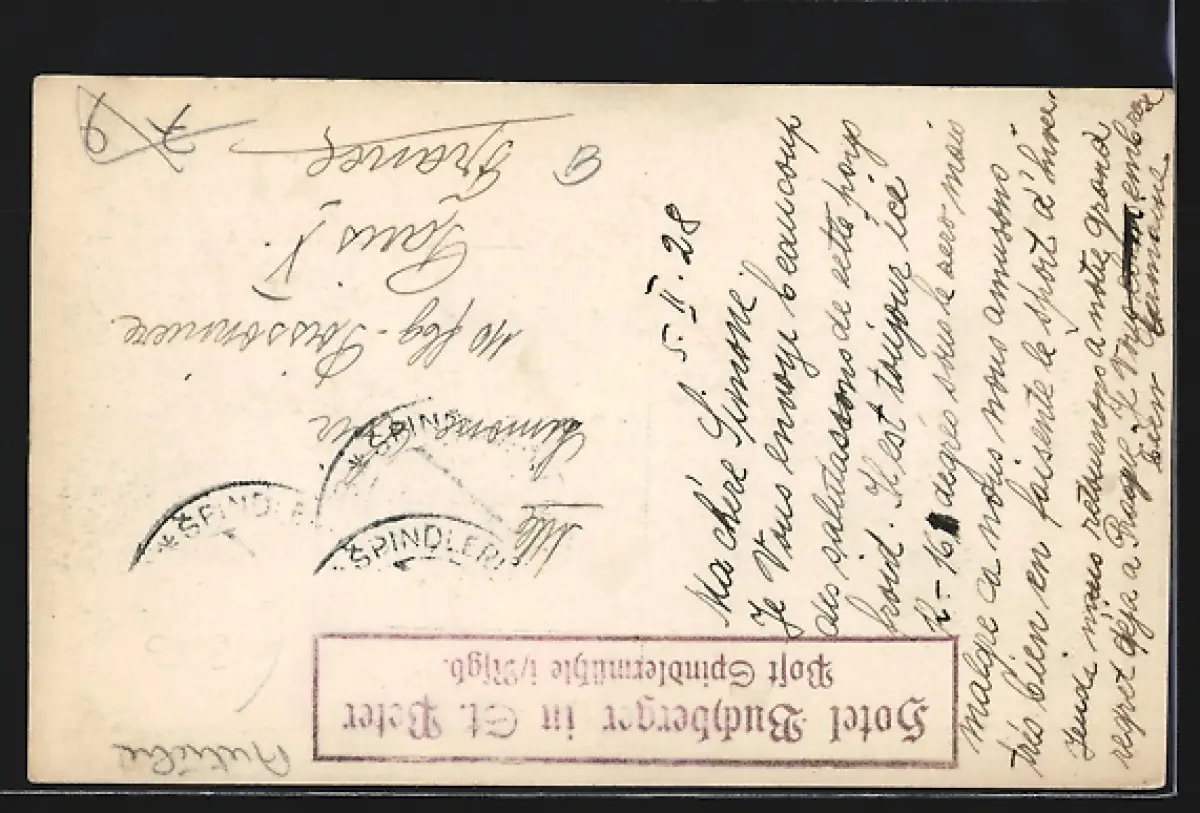 5. II. 28
Ma chère Simone!
Je Vous envoye beaucoup
des salutassons de cette pays
froid. Il est toujour ici
12-16 degrés sous le zero mais
malgre ca nous nous amusons
très bien en faisente le sport d'hiver.
Jeudi nous retournons a notre grand
regret déja a Prague. J Vous embrasse
bien
Mlle
Simone
110 fbg - Poissonnière
Paris X.
France
Hotel Buchberger in St. Peter
Post Spindlermühle i/Rsgb.
*ŠPINDL
*ŠPINDLE
ŠPINDLERŮ
79